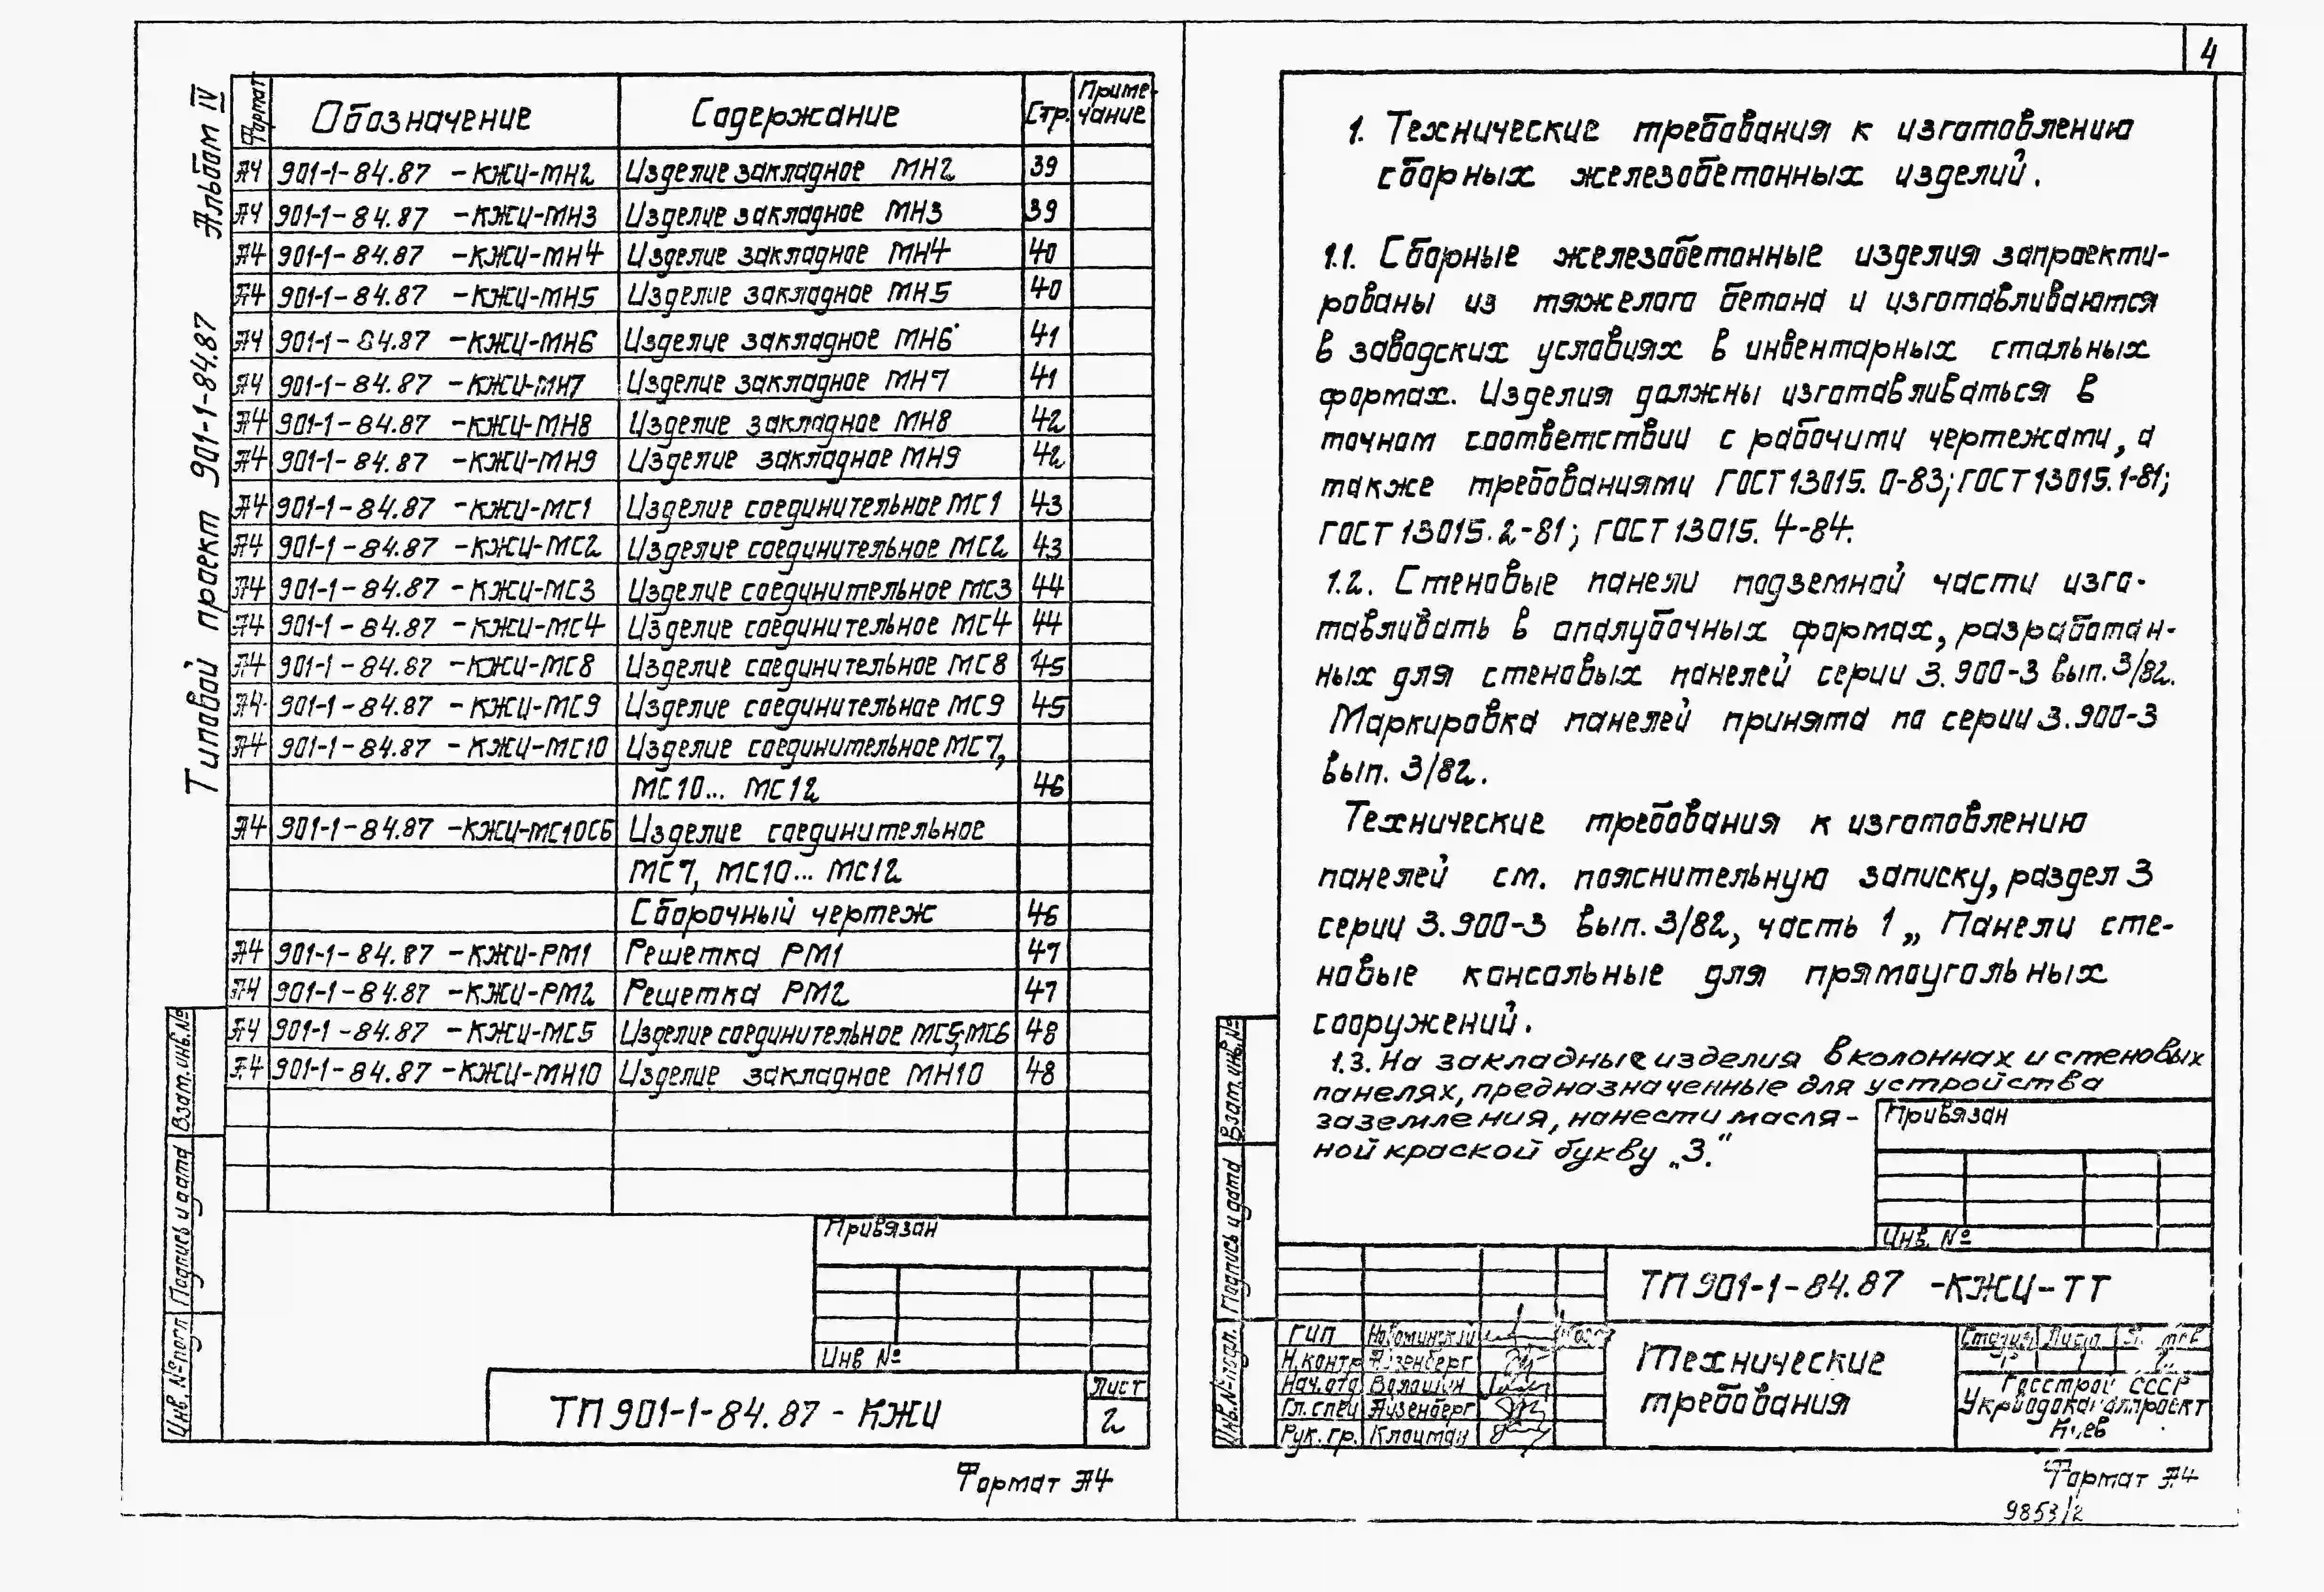 Типовой проект 901-1-84.87 Альбом IV
Формат Обозначение Содержание Стр. Приме-
чание
А4 901-1-84.87 -КЖИ-МН2 Изделие закладное МН2 39
А4 901-1-84.87 -КЖИ-МН3 Изделие закладное МН3 39
А4 901-1-84.87 -КЖИ-МН4 Изделие закладное МН4 40
А4 901-1-84.87 -КЖИ-МН5 Изделие закладное МН5 40
А4 901-1-84.87 -КЖИ-МН6 Изделие закладное МН6 41
А4 901-1-84.87 -КЖИ-МН7 Изделие закладное МН7 41
А4 901-1-84.87 -КЖИ-МН8 Изделие закладное МН8 42
А4 901-1-84.87 -КЖИ-МН9 Изделие закладное МН9 42
А4 901-1-84.87 -КЖИ-МС1 Изделие соединительное МС1 43
А4 901-1-84.87 -КЖИ-МС2 Изделие соединительное МС2 43
А4 901-1-84.87 -КЖИ-МС3 Изделие соединительное МС3 44
А4 901-1-84.87 -КЖИ-МС4 Изделие соединительное МС4 44
А4 901-1-84.87 -КЖИ-МС8 Изделие соединительное МС8 45
А4 901-1-84.87 -КЖИ-МС9 Изделие соединительное МС9 45
А4 901-1-84.87 -КЖИ-МС10 Изделие соединительное МС7,
МС10... МС12 46
А4 901-1-84.87 -КЖИ-МС10СБ Изделие соединительное
МС7, МС10... МС12
Сборочный чертеж 46
А4 901-1-84.87 -КЖИ-РМ1 Решетка РМ1 47
А4 901-1-84.87 -КЖИ-РМ2 Решетка РМ2 47
А4 901-1-84.87 -КЖИ-МС5 Изделие соединительное МС5, МС6 48
А4 901-1-84.87 -КЖИ-МН10 Изделие закладное МН10 48
Взам. инв. №
Подпись и дата
Инв. № подл
Привязан
Инв №
ТП 901-1-84.87 - КЖИ
Лист
2
Формат А4
4
1. Технические требования к изготовлению
сборных железобетонных изделий.
1.1. Сборные железобетонные изделия запроекти-
рованы из тяжелого бетона и изготавливаются
в заводских условиях в инвентарных стальных
формах. Изделия должны изготавливаться в
точном соответствии с рабочими чертежами, а
также требованиями ГОСТ 13015. 0-83; ГОСТ 13015. 1-81;
ГОСТ 13015. 2-81; ГОСТ 13015. 4-84.
1.2. Стеновые панели подземной части изго-
тавливать в опалубочных формах, разработан-
ных для стеновых панелей серии 3.900-3 вып. 3/82.
Маркировка панелей принята по серии 3.900-3
вып. 3/82.
Технические требования к изготовлению
панелей см. пояснительную записку, раздел 3
серии 3.900-3 вып. 3/82, часть 1 „ Панели сте-
новые консольные для прямоугольных
сооружений.
1.3. На закладные изделия в колоннах и стеновых
панелях, предназначенные для устройства
заземления, нанести масля-
ной краской букву „З."
Привязан
Инв. №
Взам. инв. №
Подпись и дата
Инв. № подл.
ТП 901-1-84.87 -КЖИ-ТТ
ГИП Новоминский
Н.контр Айзенберг
Нач.отд Волошин
Гл. спец Айзенберг
Рук. гр. Клоцман
Технические
требования
Стадия Лист
Р 1
Госстрой СССР
Укрводоканалпроект
Киев
Формат А4
9853/2